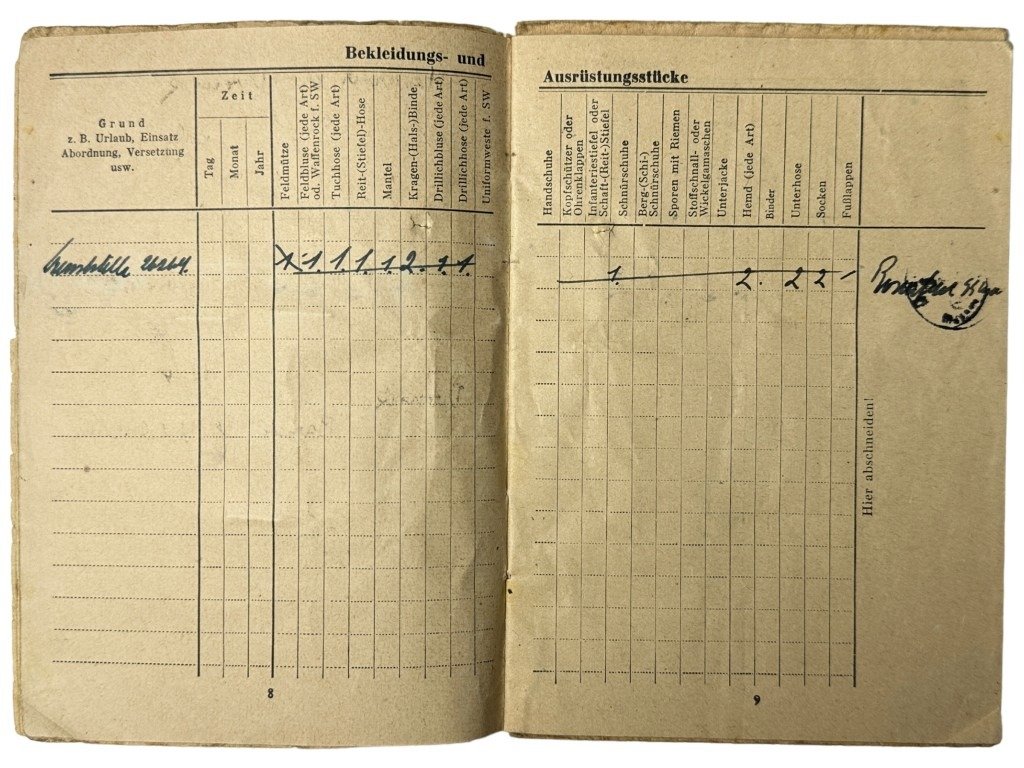 Bekleidungs- und
Grund
z. B. Urlaub, Einsatz
Abordnung, Versetzung
usw.
Zeit
Tag
Monat
Jahr
Feldmütze
Feldbluse (jede Art)
od. Waffenrock f. SW
Tuchhose (jede Art)
Reit-(Stiefel)-Hose
Mantel
Kragen-(Hals-)Binde
Drillichbluse (jede Art)
Drillichhose (jede Art)
Uniformweste f. SW
1. 1. 1. 1. 2. 1. 1.
8
Ausrüstungsstücke
Handschuhe
Kopfschützer oder
Ohrenklappen
Infanteriestiefel oder
Schaft-(Reit-)Stiefel
Schnürschuhe
Berg-(Schl-)
Schnürschuhe
Sporen mit Riemen
Stoffschnall- oder
Wickelgamaschen
Unterjacke
Hemd (jede Art)
Binder
Unterhose
Socken
Fußlappen
1. 2. 2 2
Hier abschneiden!
9